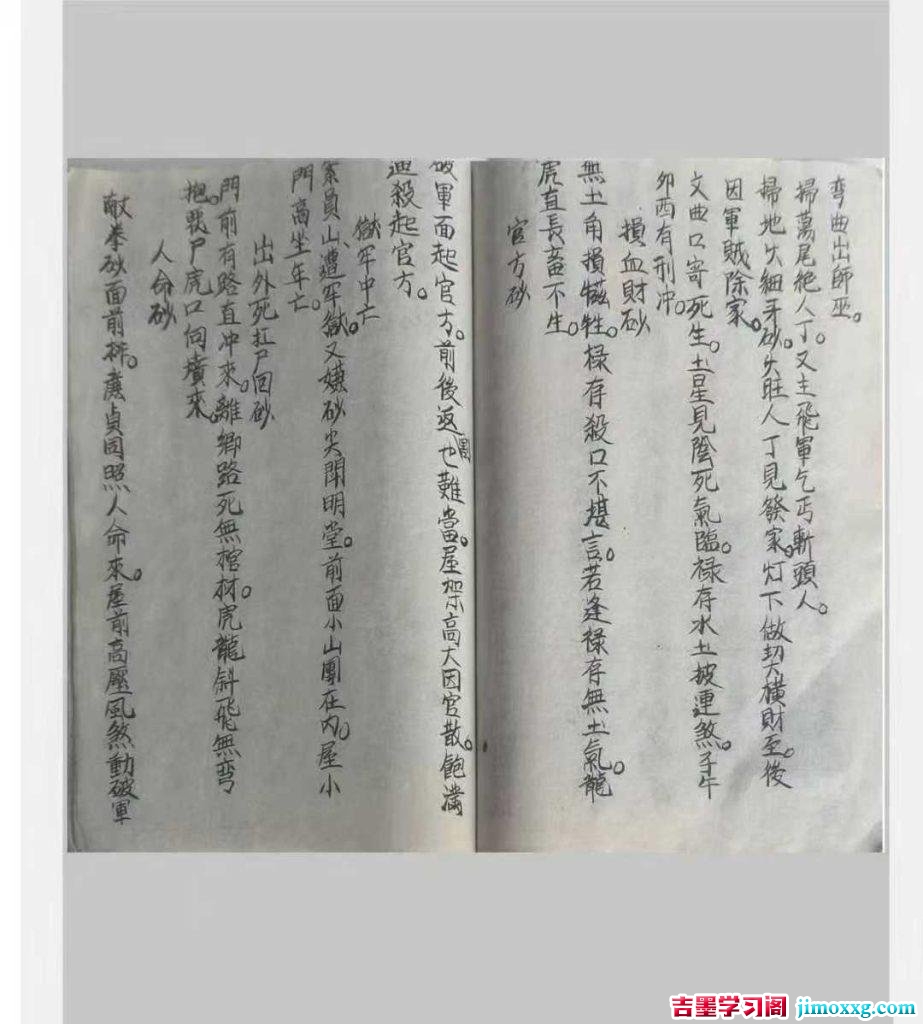 弯曲出師巫。
掃蕩尾絕人丁。又主飛軍乞丐斬頭人。
掃地火細牙砂。火旺人丁見發家。灯下做刧大橫財至。後
因軍賊除家。
文曲口寄死生。土星見陰死氣臨。禄存水土披連煞。子午
卯酉有刑冲。
損血財砂
無土角損犧牲。禄存殺口不堪言。若逢禄存無土氣。龍
虎直長畜不生。
官方砂
破軍面起官方。前後返周也難當。屋架高大因官散。飽满
迎殺起官方。
獄牢中亡
案員山、遭牢獄。又嫌砂尖閗明堂。前面小山團在内。屋小
門高坐牢亡。
出外死扛尸回砂
門前有路直冲來。離鄉路死無棺材。虎龍斜飛無弯
抱。戰尸虎口向墳來。
人命砂
献拳砂面前排。廉貞同照人命來。屋前高壓風煞動破軍
吉墨学习阁 jimoxxg.com